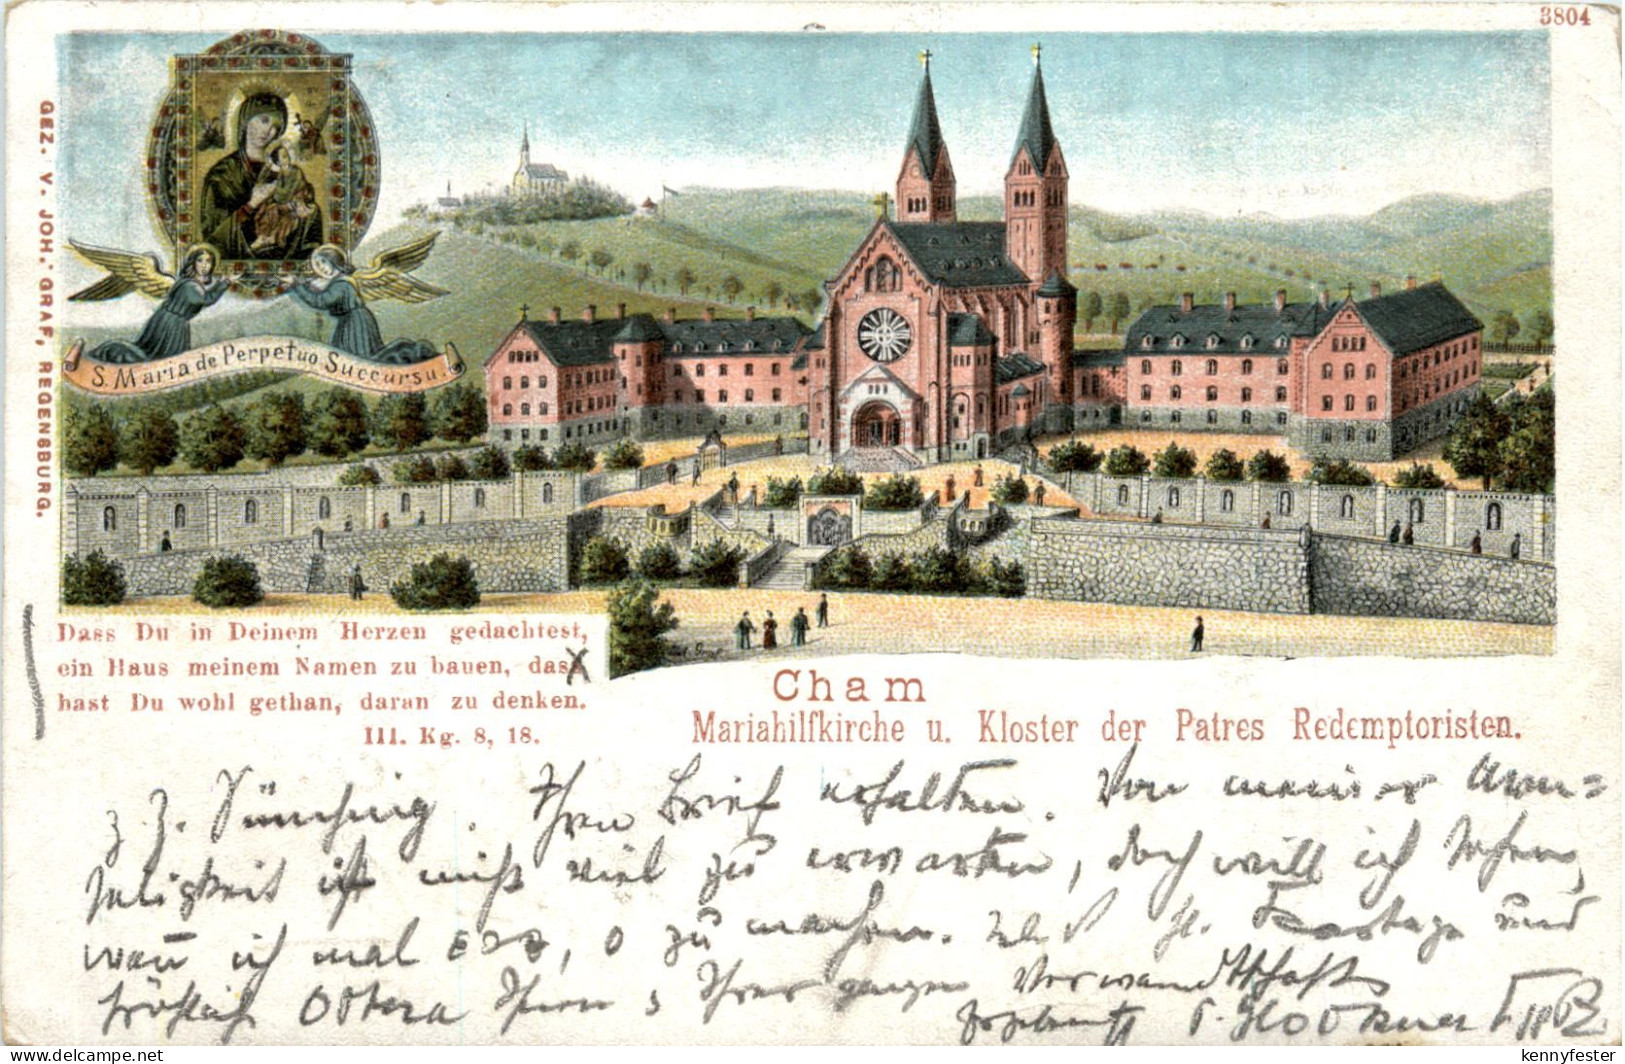 3804
GEZ. V. JOH. GRAF, REGENSBURG.
S. Maria de Perpetuo Succursu.
Dass Du in Deinem Herzen gedachtest,
ein Haus meinem Namen zu bauen, das
hast Du wohl gethan, daran zu denken.
III. Kg. 8, 18.
Cham
Mariahilfkirche u. Kloster der Patres Redemptoristen.
z. Z. Sünching. Ihren Brief erhalten. Von meiner Arm=
seligkeit ist nicht viel zu erwarten, doch will ich sehen,
wan ich mal zu machen. hl. Festtage und
fröhliche Ostern Ihnen Ihrer ganzen Verwandtschaft
P.
kennyfester